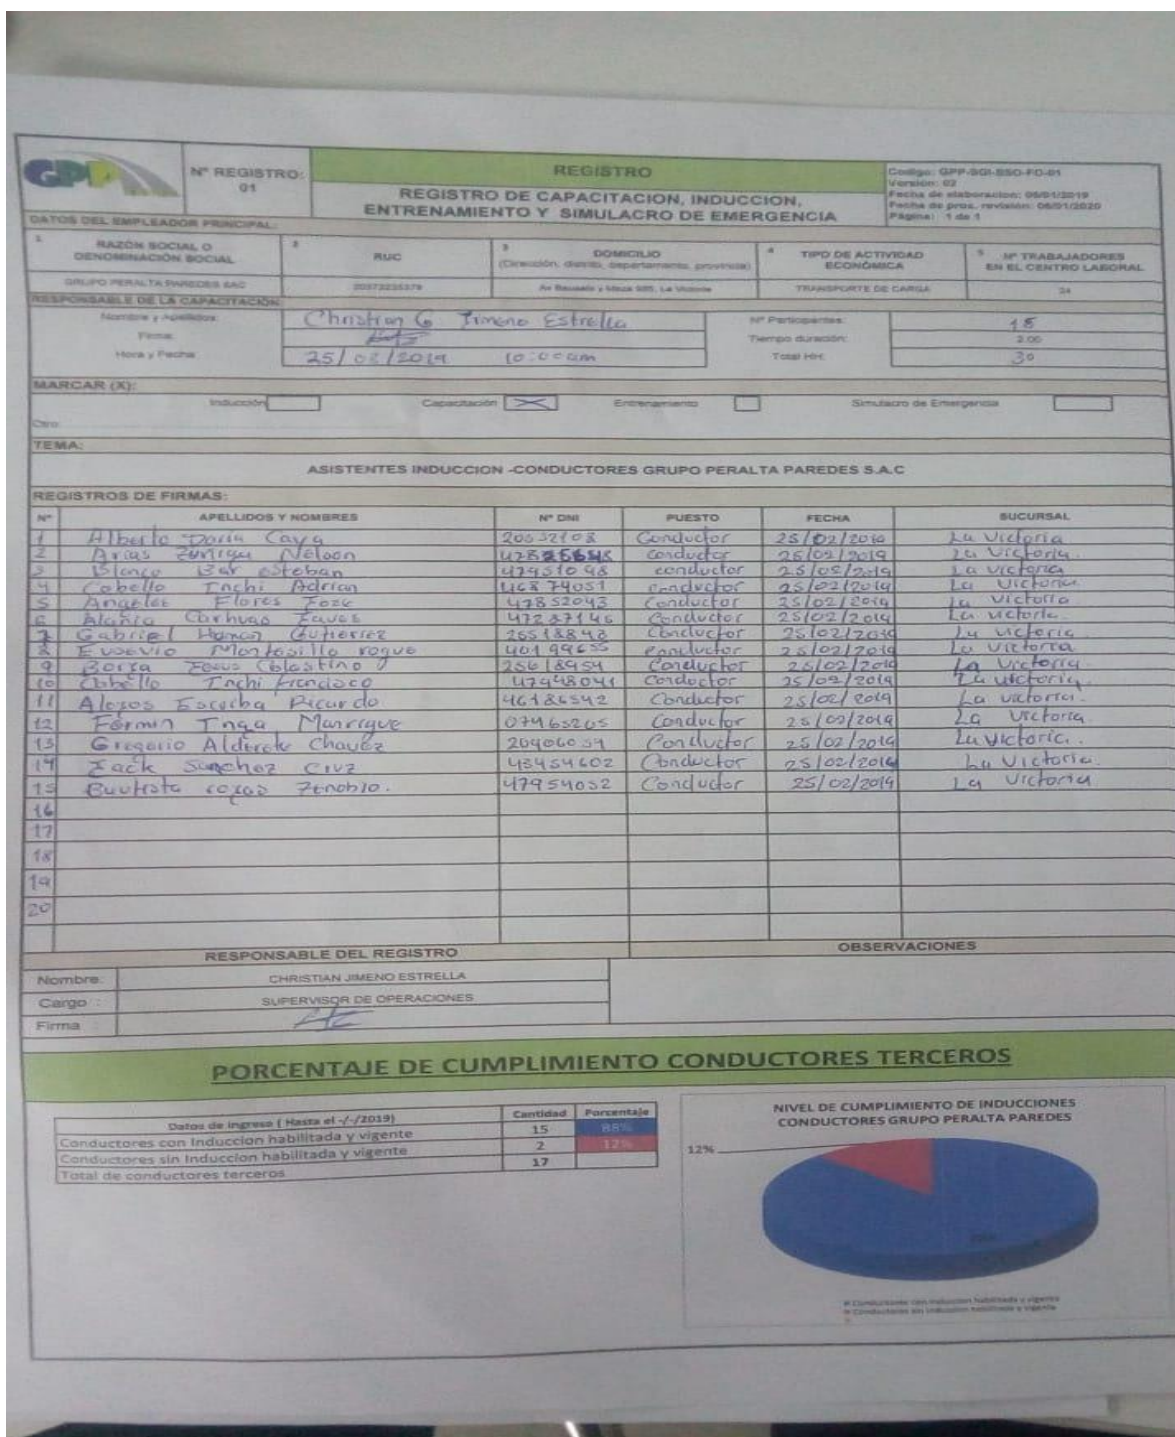 GPP
N° REGISTRO:
01
REGISTRO
REGISTRO DE CAPACITACION, INDUCCION,
ENTRENAMIENTO Y SIMULACRO DE EMERGENCIA
Codigo: GPP-SGI-SSO-FO-01
Versión: 02
Fecha de elaboracion: 06/01/2019
Fecha de prox. revisión: 06/01/2020
Página: 1 de 1
DATOS DEL EMPLEADOR PRINCIPAL:
1 RAZÓN SOCIAL O
DENOMINACIÓN SOCIAL
2 RUC
3 DOMICILIO
(Dirección, distrito, departamento, provincia)
4 TIPO DE ACTIVIDAD
ECONÓMICA
5 N° TRABAJADORES
EN EL CENTRO LABORAL
GRUPO PERALTA PAREDES SAC
La Victoria
TRANSPORTE DE CARGA
RESPONSABLE DE LA CAPACITACIÓN:
Nombre y Apellidos: Christian G Jimeno Estrella
N° Participantes: 15
Firma:
Tiempo duración: 2.00
Hora y Fecha: 25/02/2019 10:00am
Total HH: 30
MARCAR (X):
Inducción Capacitación X Entrenamiento Simulacro de Emergencia
Otro:
TEMA:
ASISTENTES INDUCCION -CONDUCTORES GRUPO PERALTA PAREDES S.A.C
REGISTROS DE FIRMAS:
N° APELLIDOS Y NOMBRES N° DNI PUESTO FECHA SUCURSAL
1 Alberto Caya Conductor 25/02/2019 La Victoria
2 Arias Zuñiga Nelson conductor 25/02/2019 La Victoria.
3 Blanco Esteban conductor 25/02/2019 La Victoria
4 Cabello Inchi Adrian 46874051 Conductor 25/02/2019 La Victoria
5 Angeles Flores Jose 47852043 Conductor 25/02/2019 La Victoria
6 Alania Carhuas Conductor 25/02/2019 La victoria.
7 Gabriel Gutierrez Conductor 25/02/2019 La victoria
8 Eusevio roque 40199655 Conductor 25/02/2019 La victoria
9 Borja Celestino 25618954 Conductor 25/02/2019 La Victoria
10 Cabello Inchi Francisco 47948041 Conductor 25/02/2019 La victoria.
11 Ricardo 46186542 Conductor 25/02/2019 La victoria.
12 Fermin Inga Manrique 07465205 Conductor 25/02/2019 La Victoria
13 Gregorio Alderete Chavez Conductor 25/02/2019 La Victoria.
14 Jack Sanchez Cruz 43454602 Conductor 25/02/2019 La Victoria.
15 Bautista rojas Zenobio. 47954032 Conductor 25/02/2019 La Victoria
16
17
18
19
20
RESPONSABLE DEL REGISTRO OBSERVACIONES
Nombre: CHRISTIAN JIMENO ESTRELLA
Cargo : SUPERVISOR DE OPERACIONES
Firma :
PORCENTAJE DE CUMPLIMIENTO CONDUCTORES TERCEROS
Datos de ingreso ( Hasta el -/-/2019) Cantidad Porcentaje
Conductores con Induccion habilitada y vigente 15 88%
Conductores sin Induccion habilitada y vigente 2 12%
Total de conductores terceros 17
NIVEL DE CUMPLIMIENTO DE INDUCCIONES
CONDUCTORES GRUPO PERALTA PAREDES
12%
Conductores con Induccion habilitada y vigente
Conductores sin Induccion habilitada y vigente